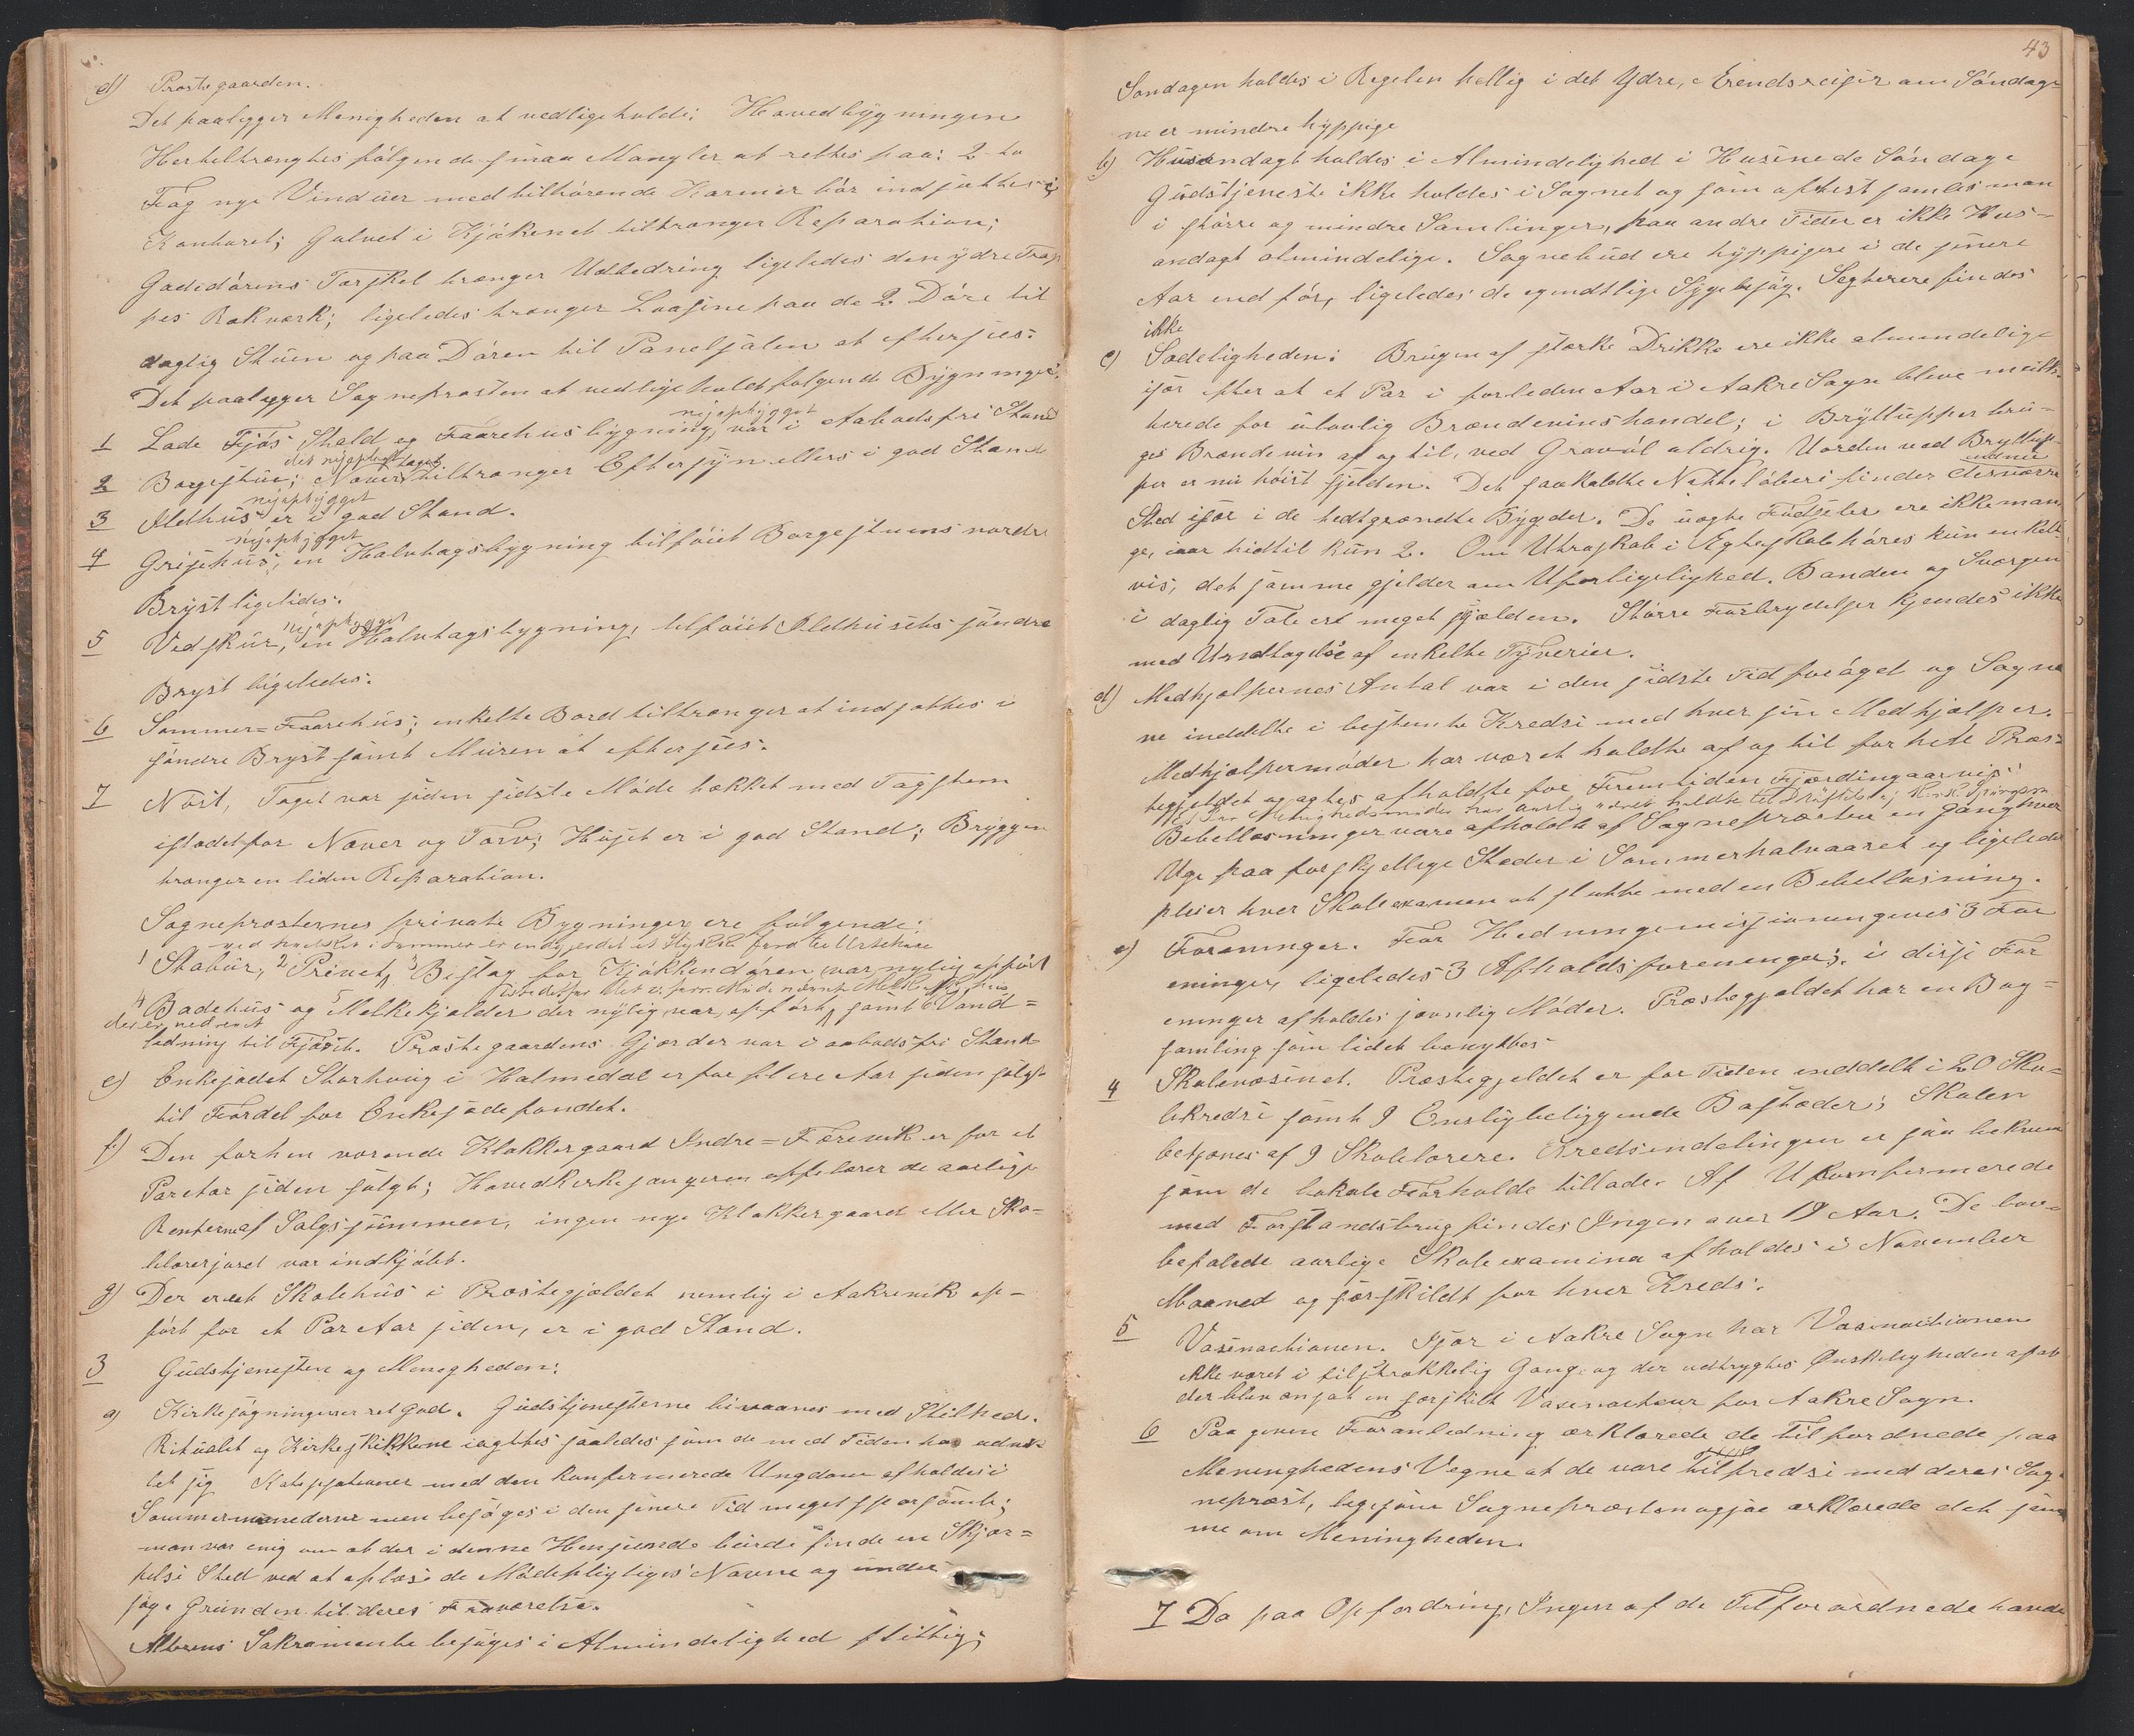 d) Prostegaarden.
Det paaligger Menigheden at vedligeholde: Hovedbygningen
Hertiltrængtes følgende smaa Mangler at rettes paa: 2 to
Fag nye Vinduer med tilhørende Karmer bør indsættes i
Kontoret; Gulvet i Kjøkenet tiltrænger Reparation;
Gadedørens Tærskel trænger Udbedring ligeledes den ydre Trap
pes Rækværk; ligeledes trænger Laasene paa de 2 Døre til
daglig Stuen og paa Døren til Panelsalen at eftersees.
Det paaligger Sognepræsten at vedligeholde følgende Bygninger.
1 Lade Fjøs Stald og Faarehusbygning, nyopbygget var i Aabodsfri Stand
2 Borgestue; Næver tiltrænger Eftersyn ellers i god Stand
3 Ildhus nyopbygget er i god Stand.
4 Grisehus, nyopbygget en Halvtagsbygning tilføiet Borgestuens nordre
Bryst ligeledes.
5 Vedskur, nyopbygget en Halvtagsbygning, tilføiet Ildhusets søndre
Bryst ligeledes.
6 Sommer=Faarehus; enkelte Bord tiltrænger at indsættes i
søndre Bryst samt Muren at eftersees.
7 Nøst, Taget var siden sidste Møde tækket med Tagsten
istedetfor Næver og Torv; Huset er i god Stand; Bryggen
trænger en liden Reparation.
Sognepræsternes private Bygninger ere følgende:
1 Stabur, 2 Privet, 3 Bislag for Kjøkkendøren var nylig opført
4 Badehus og 5 Melkekjælder der nylig var opført, samt 6 Vand=
ledning til Fjøset. Præstegaardens Gjærder var i aabodsfri Stand
e) Enkesædet Storhaug i Halmedal er for flere Aar siden solgt
til Fordel for Enkesædefondet.
f) Den forhen værende Klokkergaard Indre=Færevik er for et
Par Aar siden solgt; Hovedkirkesangeren oppebærer de aarlige
Renter af Salgssummen, ingen nye Klokkergaard eller Sko=
lelærerjord var indkjøbt.
g) Der er et Skolehus i Præstegjældet nemlig i Aakrevik op=
ført for et Par Aar siden, er i god Stand.
3 Gudstjenesten og Menigheden:
a) Kirkesøgningen er ret god. Gudstjenesterne bivaanes med Stilhed.
Ritualet og Kirkeskikkene iagttes saaledes som de med Tiden har udvik
let sig Katekisationer med den konfirmerede Ungdom afholdes i
Sommermaanederne men besøges i den senere Tid meget sparsomt;
man var enig om at der i denne Henseende burde finde en Skjær=
pelse Sted ved at oplæse de Mødepligtiges Navne og under
søge Grunden til deres Fraværelse.
Alterens Sakramente besøges i Almindelighed flittig;
43
Søndagen holdes i Regelen hellig i det Ydre, Ærendsreiser om Søndage
ne er mindre hyppige
b) Husandagt holdes i Almindelighed i Husene de Søndage
Gudstjeneste ikke holdes i Sognet og som oftest samles man
i større og mindre Samlinger, paa andre Tider er ikke Hus=
andagt almindelige. Sognebud ere hyppigere i de senere
Aar end før, ligeledes de egentlige Sygebesøg. Segterere findes
ikke
c) Sædeligheden: Brugen af stærke Drikke ere ikke almindelige
især efter at et Par i forleden Aar i Aakre Sogn bleve mulk=
terede for ulovlig Brændevinshandel; i Bryllupper bru=
ges Brændevin af og til, ved Gravøl aldrig. Uorden ved Bryllup=
per er nu høist sjelden. Det saakaldte Natteløberi finder endnu desværre
Sted især i de tedtgrændte Bygder. De uægte Fødsler ere ikke man
ge, iaar hidtil kun 2. Om Utroskab i Ægteskab høres kun enkelt
vis, det samme gjelder om Uforligelighed. Banden og Sværgen
i daglig Tale ere meget sjælden. Større Forbrydelser kjendes ikke
med Undtagelse af enkelte Tyverier.
d) Medhjælpernes Antal var i den sidste Tid forøget og Sogne
ne inddelte i bestemte Kredse med hver sin Medhjælper.
Medhjælpermøder har været holdte af og til for hele Præs=
tegjeldet og agtes afholdte for Fremtiden Fjerdingaarvis
Bibellæsninger vare afholdt af Sognepræsten en Gang hver
Uge paa forskjellige Steder i Sommerhalvaaret og ligeledes
pleier hver Skoleexamen at slutte med en Bibellæsning.
e) Foreninger. For Hedningemissionen gives 3 For
eninger, ligeledes 3 Afholdsforeninger; i disse For
eninger afholdes jævnlig Møder. Præstegjældet har en Bog=
samling som lidet benyttes.
4 Skolevæsenet. Præstegjeldet er for Tiden inddelt i 20 Sko=
lekredse samt 9 Ensligbeliggende Bosteder; Skolen
betjenes af 9 Skolelærere. Kredsindelingen er saa bekvem
som de lokale Forholde tillade. Af Ukonfirmerede
med Forstandsbrug findes Ingen over 19 Aar. De lov=
befalede aarlige Skoleexamina afholdes i November
Maaned og særskildt for hver Kreds.
5 Vaxinationen. Især i Aakre Sogn har Vaxinationen
ikke været i tilstrækkelig Gang og der udtrygtes Ønskeligheden af at
der blev ansat en særskilt Vaxinateur for Aakre Sogn.
6 Paa given Foranledning erklærede de Tilfordnede paa
Meninghedens Vegne at de vare Tilfredse med deres Sog=
nepræst, ligesom Sognepræsten ogsaa erklærede det sam
me om Meningheden.
7 Da paa Opfordring, Ingen af de Tilforordnede havde